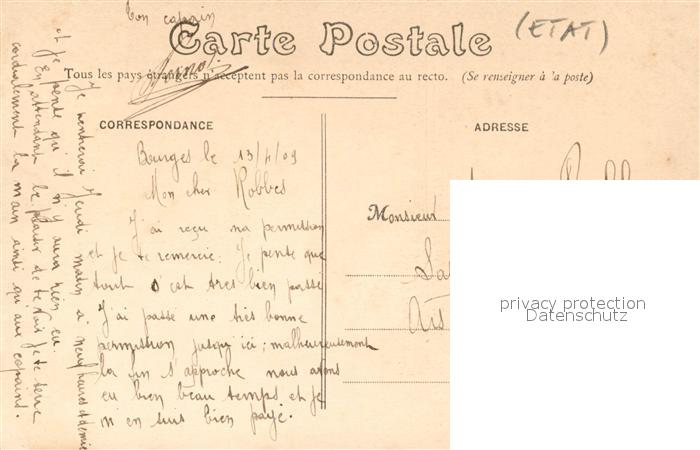 Ton copain
(ETAT)
Carte Postale
Tous les pays étrangers n'acceptent pas la correspondance au recto. (Se renseigner à 'a poste)
CORRESPONDANCE
Bourges le 13/4/09
Mon cher Robbes
J'ai reçu ma permission
et je te remercie. Je pense que
tout s'est tres bien passé
J'ai passé une très bonne
permission jusqu'ici ; malheureusement
la fin s'approche nous avons
eu bien beau temps et je
m'en suis bien payé.
Je rentrerai Jeudi matin à neuf heures et demie
et je pense qu'il n'y aura rien eu.
En attendant le plaisir de te voir je te serre
cordialement la main ainsi qu'aux copains.
ADRESSE
Monsieur
privacy protection
Datenschutz